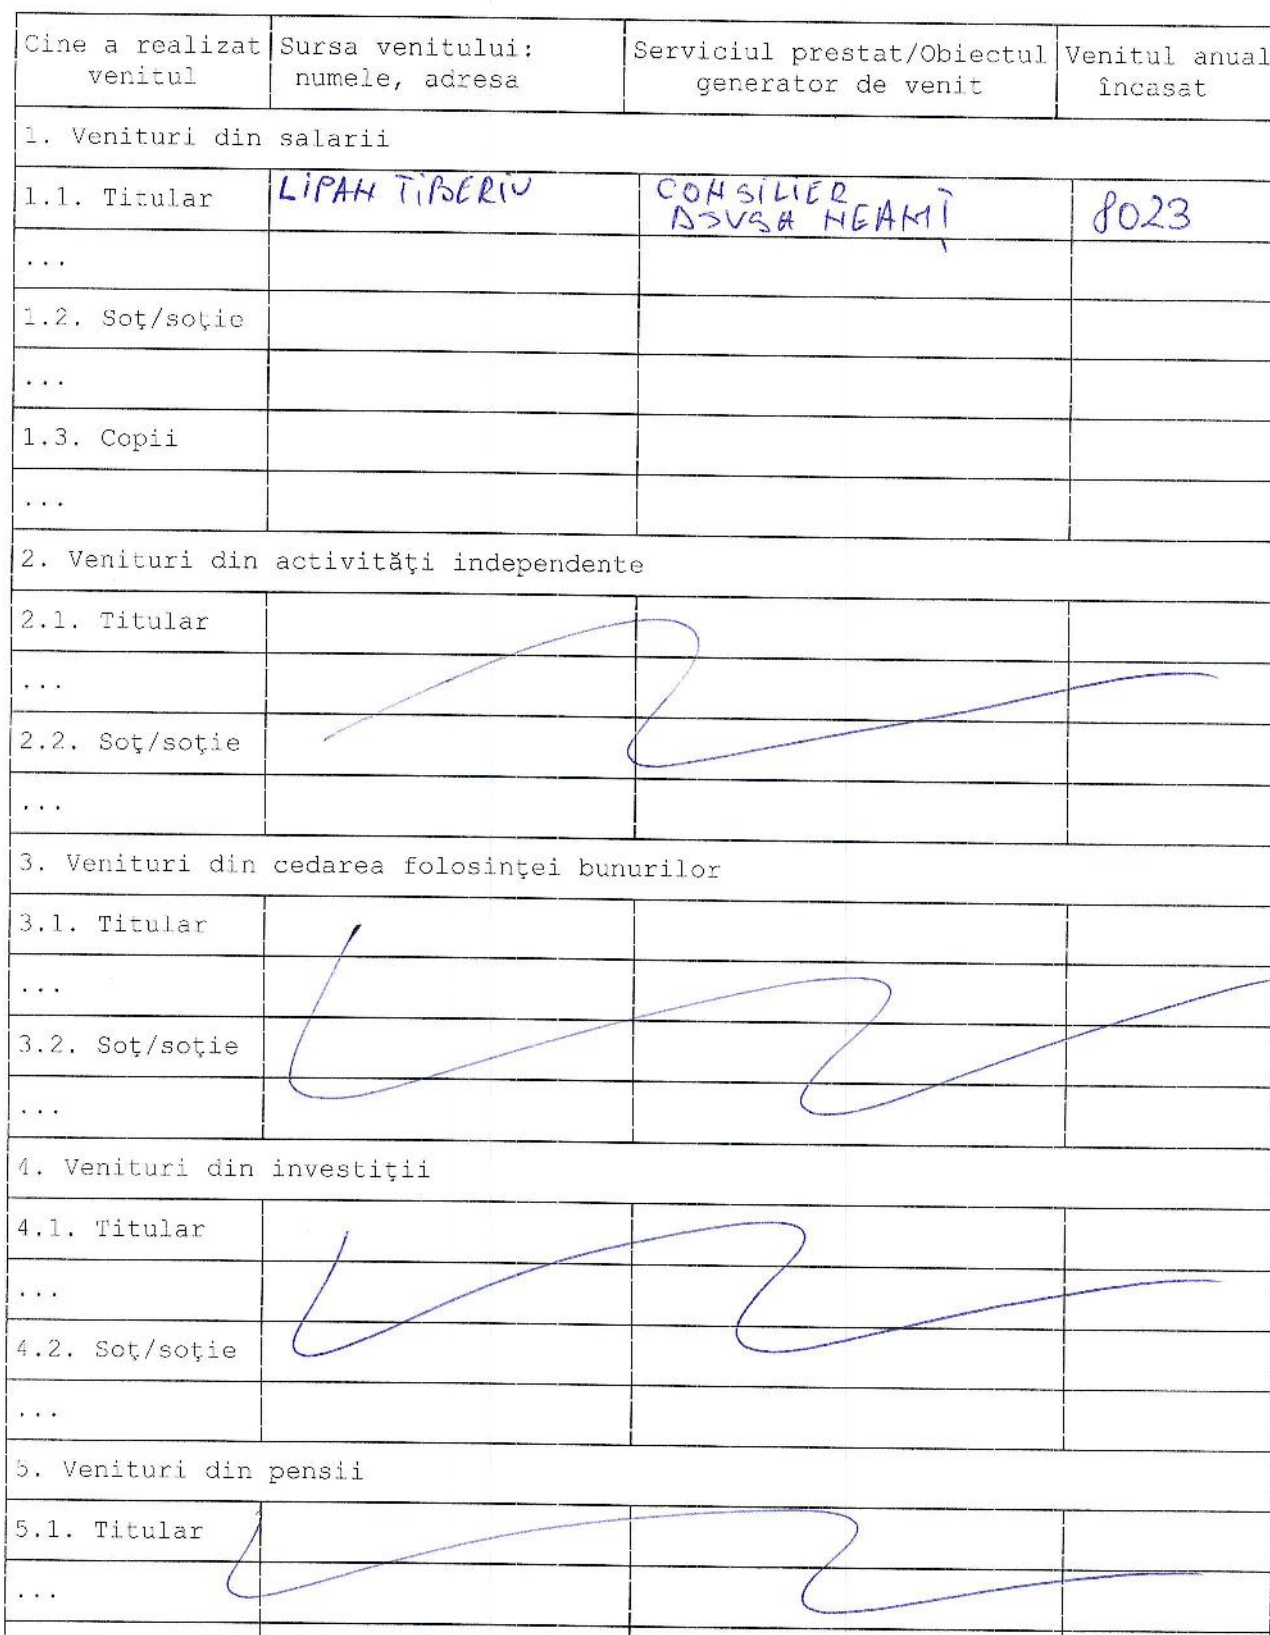 Cine a realizat venitul | Sursa venitului: numele, adresa | Serviciul prestat/Obiectul generator de venit | Venitul anual încasat
1. Venituri din salarii
1.1. Titular LIPAN TIBERIU CONSILIER 8023
DSVSA NEAMȚ
...
1.2. Soţ/soţie
...
1.3. Copii
...
2. Venituri din activităţi independente
2.1. Titular
...
2.2. Soţ/soţie
...
3. Venituri din cedarea folosinţei bunurilor
3.1. Titular
...
3.2. Soţ/soţie
...
4. Venituri din investiţii
4.1. Titular
...
4.2. Soţ/soţie
...
5. Venituri din pensii
5.1. Titular
...